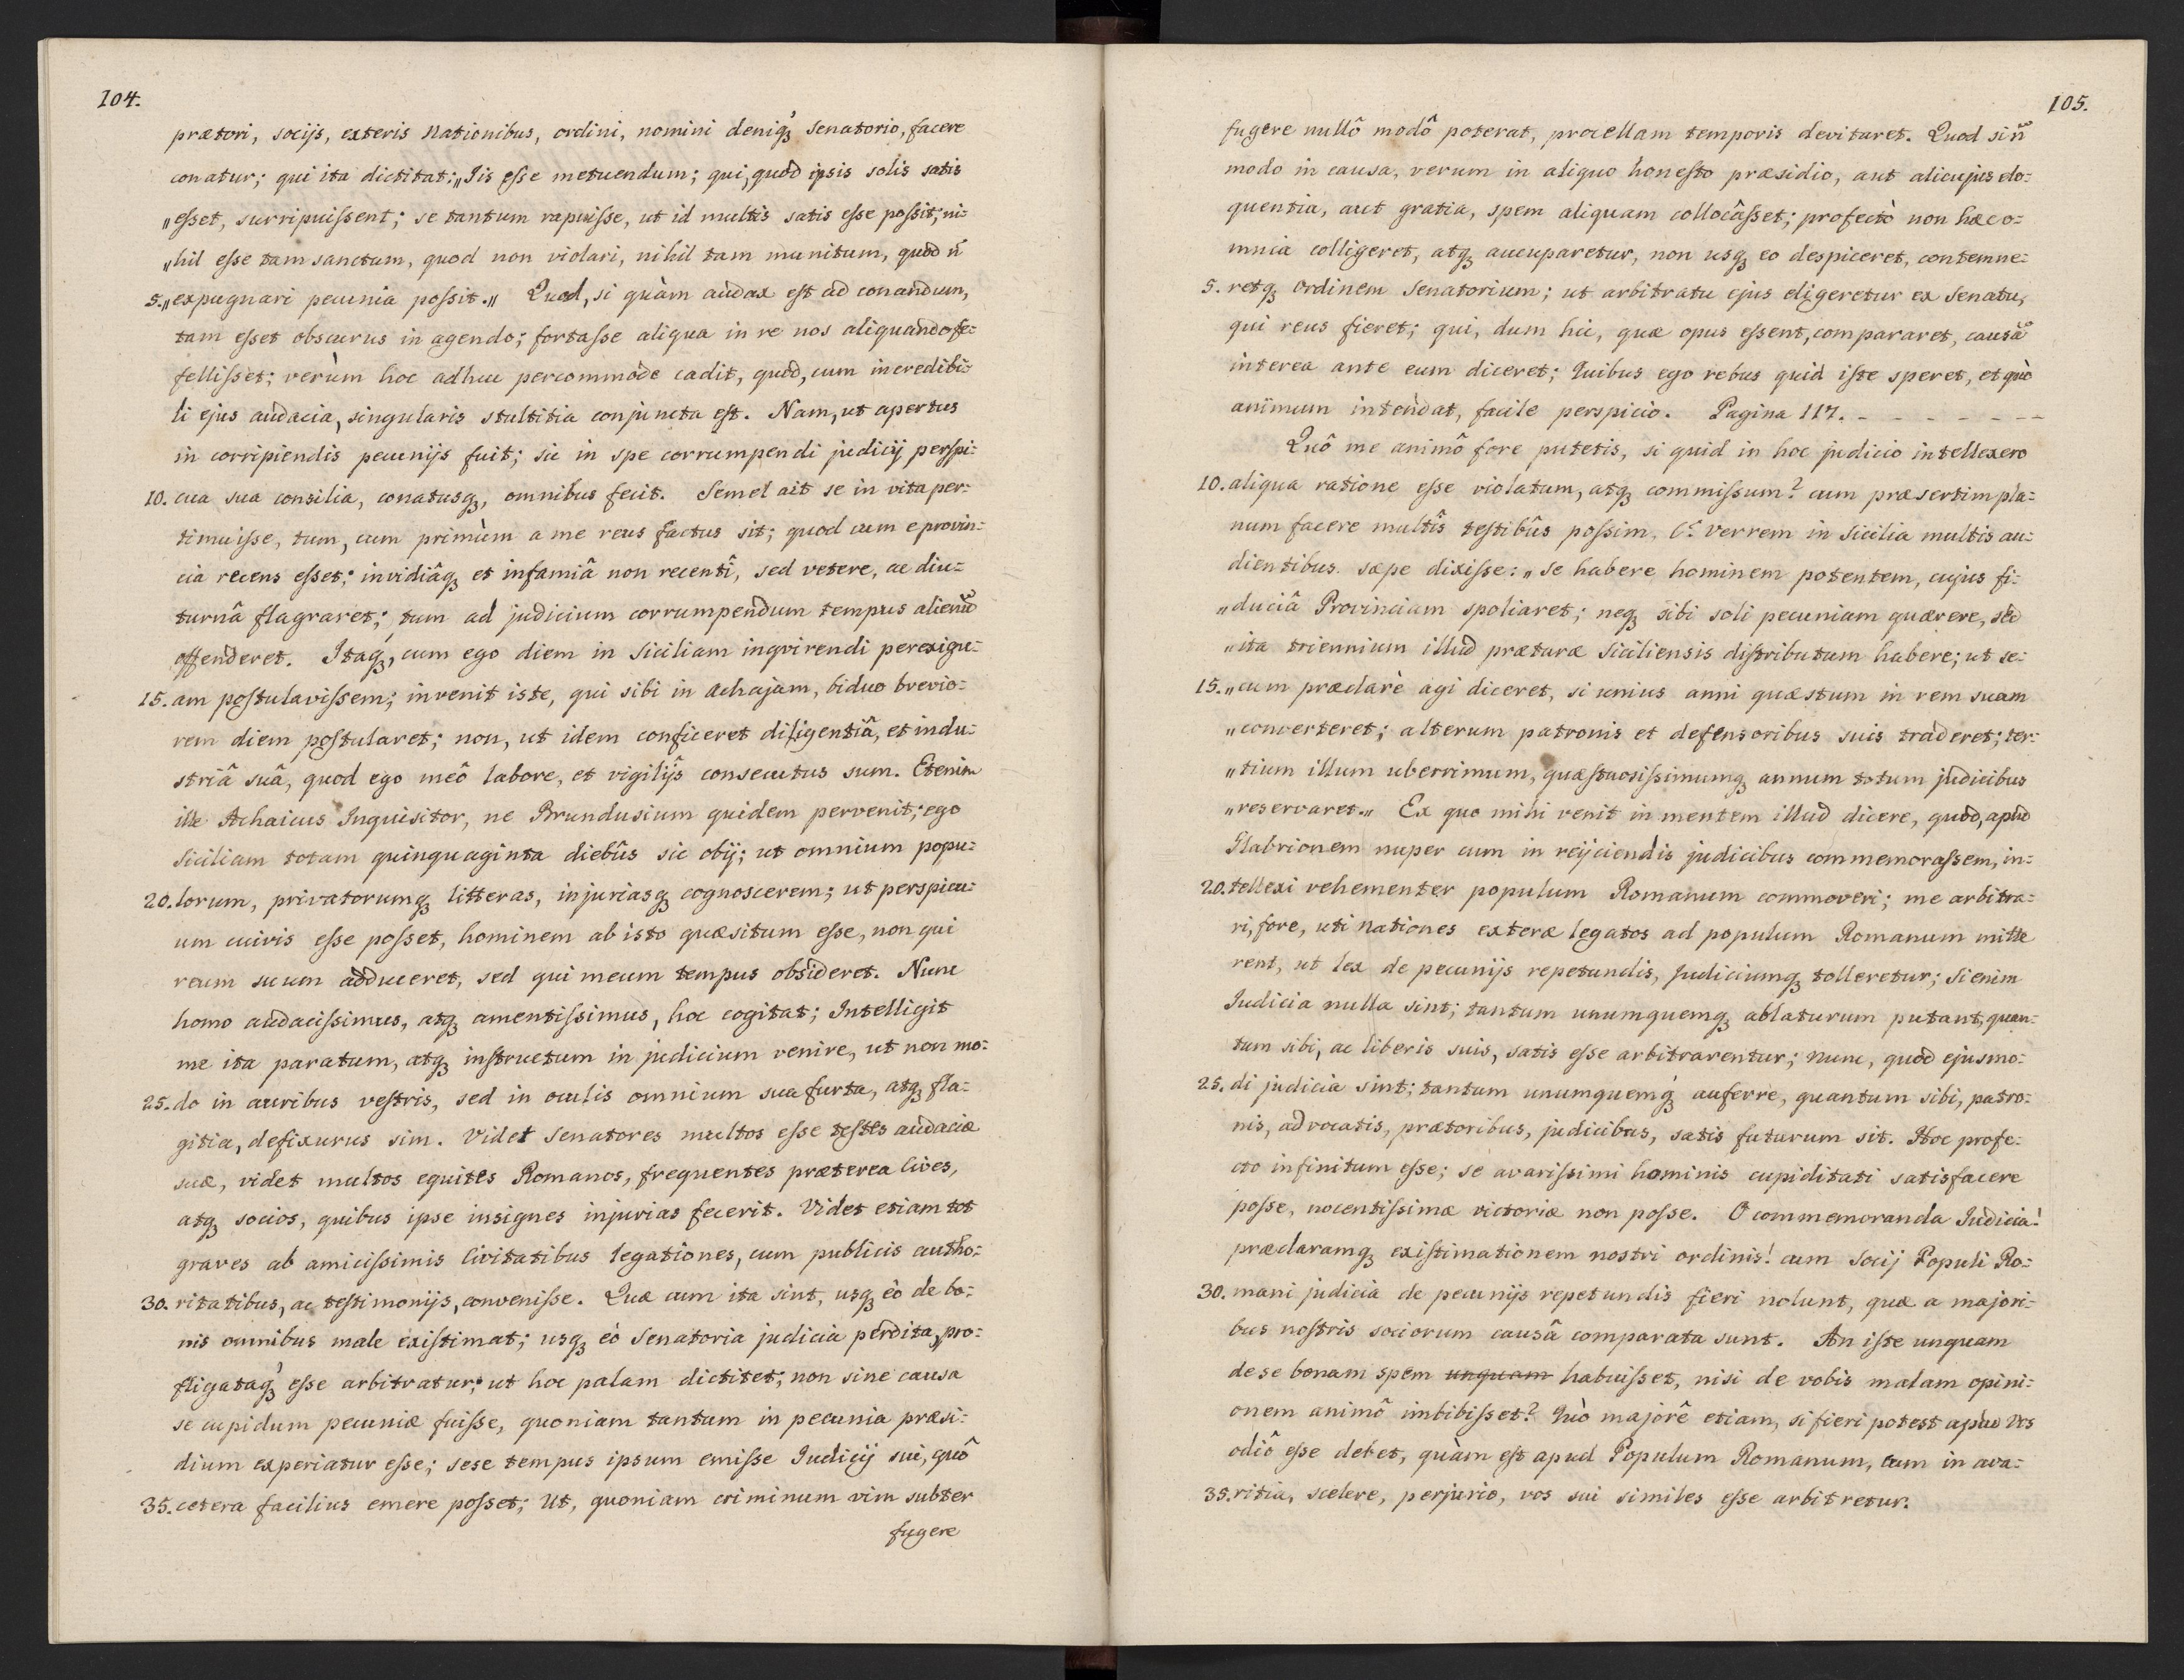 104.
prætori, socijs, exteris Nationibus, ordini, nomini deniqꝫ́ Senatorio, facere
conatur; qui ita dictitat: „Iis eſse metuendum; qui, quòd ipsis solis satis
„eſset, surripuiſsent; se tantum rapuiſse, ut id multis satis eſse poſsit; ni=
„hil eſse tam sanctum, quod non violari, nihil tam munitum, quòd n̄
5. „expugnari pecunia poſsit.„ Quod, si quàm audax eſt ad conandum,
tam eſset obscurus in agendo; fortaſse aliqua in re nos aliquando fe=
felliſset; verùm hoc adhuc percommòde cadit, quòd, cum incredibi=
li ejus audacia, singularis stultitia conjuncta eſt. Nam, ut apertus
in corripiendis pecunijs fuit; sic in spe corrumpendi judicij perſpi=
10. cua sua consilia, conatusqꝫ, omnibus fecit. Semel ait se in vita per=
timuiſse, tum, cum primùm a me reus factus sit; quod cum e provin=
cia recens eſset; invidiâqꝫ et infamiâ non recentî, sed vetere, ac diu=
turnâ flagraret; tum ad judicium corrumpendum tempus alienū
offenderet. Itaqꝫ́, cum ego diem in Siciliam inqvirendi perexigu=
15. am poſtulaviſsem; invenit iste, qui sibi in Achajam, biduo brevio=
rem diem poſtularet; non, ut idem conficeret diligentiâ, et indu=
striâ suâ, quod ego meô labore, et vigilijs consecutus sum. Etenim
ille Achaicus Inquisitor, ne Brundusium quidem pervenit; ego
Siciliam totam quinquaginta diebûs sic obij; ut omnium popu=
20. lorum, privatorumqꝫ litteras, injuriasqꝫ cognoscerem; ut perspicu=
um cuivis eſse poſset, hominem ab isto quæsitum eſse, non qui
reum suum adduceret, sed qui meum tempus obsideret. Nunc
homo audaciſsimus, atqꝫ amentiſsimus, hoc cogitat; Intelligit
me ita paratum, atqꝫ inſtructum in judicium venire, ut non mo=
25. do in auribus veſtris, sed in oculis omnium sua furta, atqꝫ fla=
gitia, defixurus sim. Videt Senatores multos eſse teſtes audaciæ
suæ, videt multos equites Romanos, frequentes præterea Cives,
atqꝫ socios, quibus ipse insignes injurias fecerit. Videt etiam tot
graves ab amiciſsimis Civitatibus legationes, cum publicis autho=
30. ritatibus, ac teſtimonijs, conveniſse. Quæ cum ita sint, usqꝫ eò de bo=
nis omnibus male exiſtimat; usqꝫ eò Senatoria judicia perdita, pro=
fligataqꝫ́ eſse arbitratur; ut hoc palam dictitet; non sine causa
se cupidum pecuniæ fuiſse, quoniam tantum in pecunia præsi=
dium experiatur eſse; sese tempus ipsum emiſse Judicij sui, quô
35. cetera facilius emere poſset; Ut, quoniam criminum vim subter
fugere
105.
fugere nullô modô poterat, procellam temporis devitaret. Quod si n̄
modo in causa, verum in aliquo honeſto præsidio, aut alicujus elo=
quentia, aut gratia, spem aliquam collocâſset; profectò non hæc o=
mnia colligeret, atqꝫ aucuparetur, non usqꝫ eo despiceret, contemne=
5. retqꝫ ordinem Senatorium; ut arbitratu ejus eligeretur ex Senatu,
qui reus fieret; qui, dum hic, quæ opus eſsent, compararet, causā
interea ante eum diceret; Quibus ego rebus quid iſte speret, et quò
animum intendat, facile perspicio. Pagina 117. - - - - - - -
Quô me animô fore putetis, si quid in hoc judicio intellexero
10. aliqua ratione eſse violatum, atqꝫ commiſsum? cum præsertim pla=
num facere multîs teſtibûs poſsim, C. Verrem in Sicilia multis au=
dientibus sæpe dixiſse: „Se habere hominem potentem, cujus fi=
„duciâ Provinciam spoliaret; neqꝫ sibi soli pecuniam quærere, sed
„ita triennium illud præturæ Siciliensis diſtributum habere; ut se=
15. „cum præclarè agi diceret, si unius anni quæstum in rem suam
„converteret; alterum patronis et defensoribus suis traderet; ter=
„tium illum uberrimum, quæſtuosiſsimumqꝫ annum totum judicibus
„reservaret.„ Ex quo mihi venit in mentem illud dicere, quòd, apud
Glabrionem nuper cum in reijciendis judicibus commemoraſsem, in=
20. tellexi vehementer populum Romanum commoveri; me arbitra=
ri, fore, uti Nationes exteræ legatos ad populum Romanum mitte
rent, ut lex de pecunijs repetundis, Judiciumqꝫ tolleretur; Si enim
Judicia nulla sint; tantum unumquemqꝫ ablaturum putant, quan=
tum sibi, ac liberis suis, satis eſse arbitrarentur; nunc, quod ejusmo=
25. di judicia sint; tantum unumquemqꝫ́ auferre, quantum sibi, patro=
nis, advocatis, prætoribus, judicibus, satis futurum sit. Hoc profe=
cto infinitum eſse; se avariſsimi hominis cupiditati satisfacere
poſse, nocentiſsimæ victoriæ non poſse. O commemoranda Judicia!
præclaramqꝫ exiſtimationem nostri ordinis! cum Socij Populi Ro=
30. mani judicia de pecunijs repetundis fieri nolunt, quæ a majori=
bus noſtris sociorum causâ comparata sunt. An iſte unquam
de se bonam spem unquam habuiſset, nisi de vobis malam opini=
onem animô imbibiſset? Quò majorê etiam, si fieri potest apud vos
odiô eſse debet, quàm eſt apud Populum Romanum, cum in ava=
35. ritia, scelere, perjurio, vos sui similes eſse arbitretur.